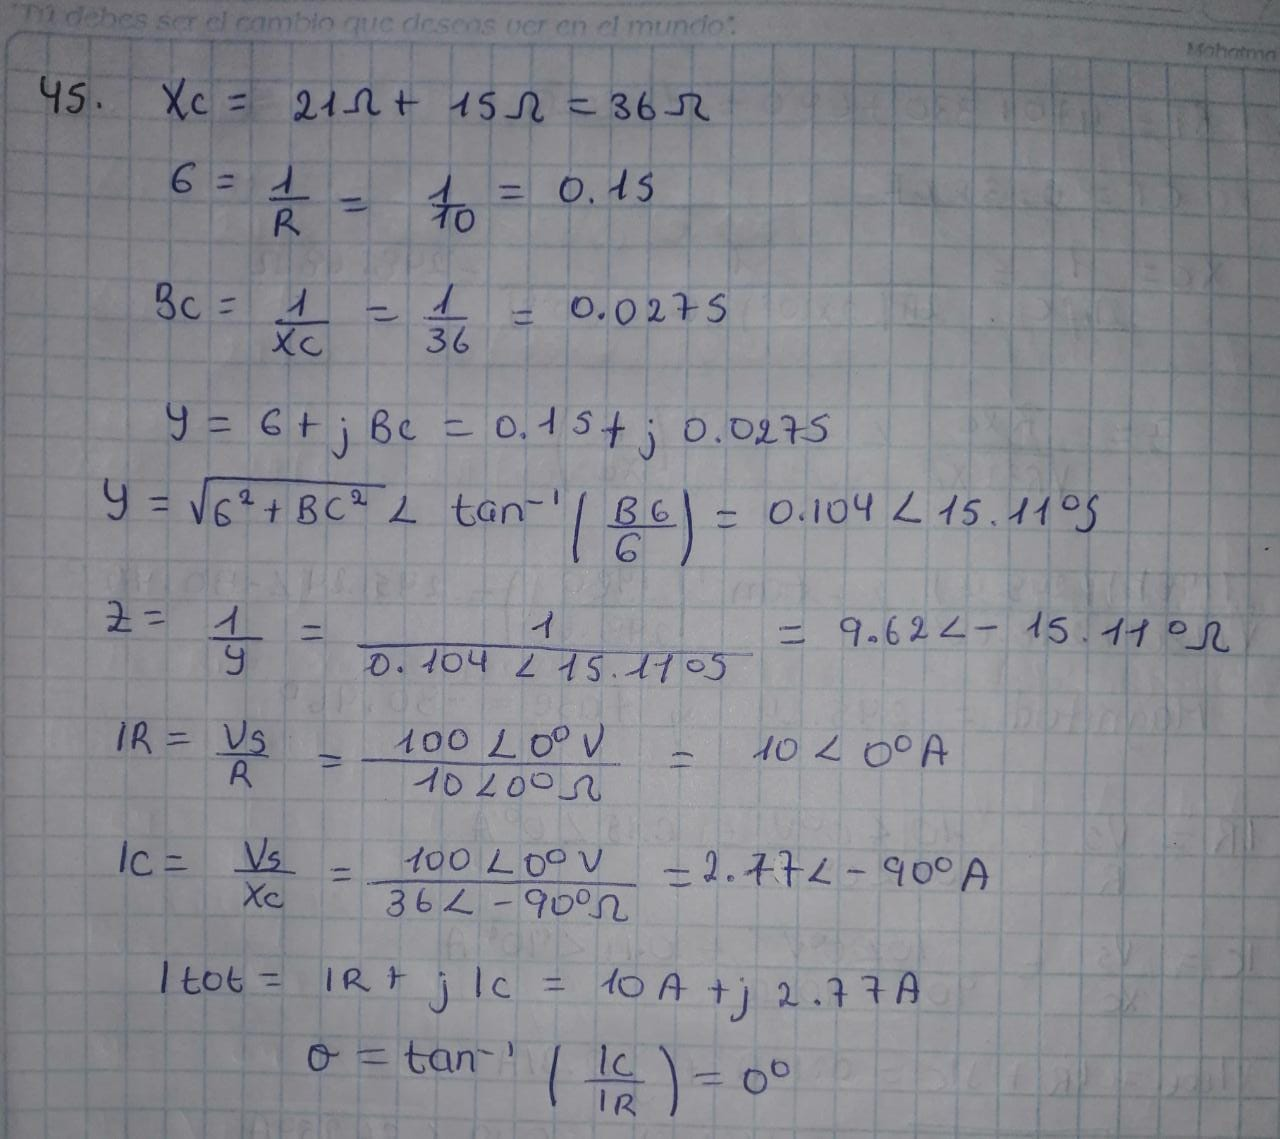 "Tú debes ser el cambio que deseas ver en el mundo".
Mahatma
45. Xc = 21Ω + 15Ω = 36Ω
G = 1/R = 1/10 = 0.1S
Bc = 1/Xc = 1/36 = 0.027S
y = G + j Bc = 0.1S + j 0.027S
y = √G² + BC² < tan⁻¹ (BG/G) = 0.104 < 15.11°S
Z = 1/y = 1/0.104 < 15.11°S = 9.62 < - 15.11°Ω
IR = Vs/R = 100 < 0° V/10 < 0°Ω = 10 < 0° A
Ic = Vs/Xc = 100 < 0° V/36 < - 90°Ω = 2.77 < - 90° A
Itot = IR + j Ic = 10 A + j 2.77 A
σ = tan⁻¹ (IC/IR) = 0°